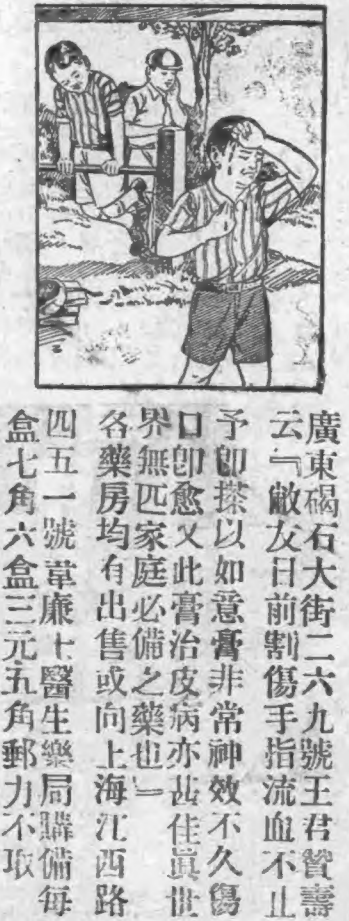 廣東碣石大街二六九號王君贊壽
云『敝友日前割傷手指流血不止
予卽搽以如意膏非常神效不久傷
口卽愈又此膏治皮病亦甚佳眞世
界無匹家庭必備之藥也』
各藥房均有出售或向上海江西路
四五一號韋廉士醫生藥局購備每
盒七角六盒三元五角郵力不取